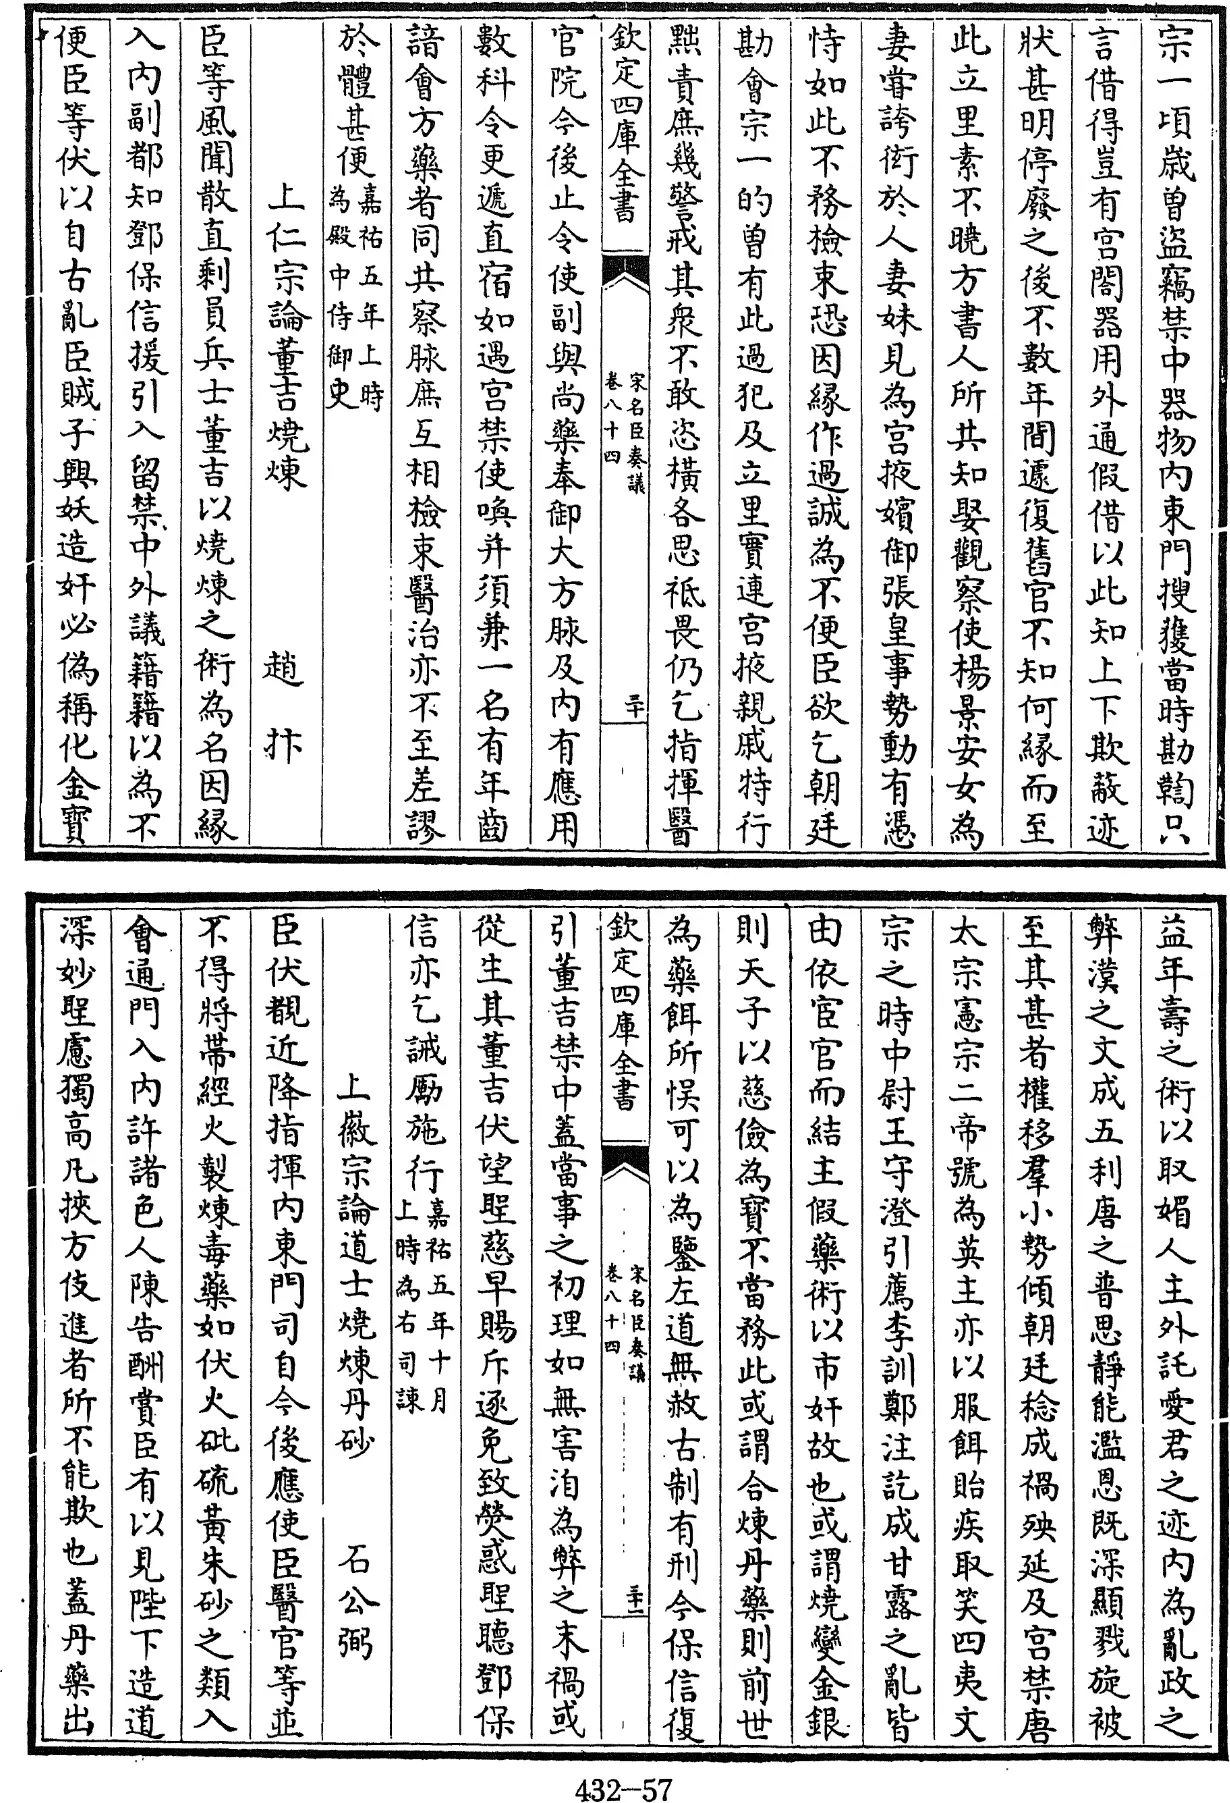 宗一頃歲曽盜竊禁中器物内東門搜獲當時勘鞫只
言借得豈有宫閤器用外通假借以此知上下欺蔽迹
狀甚明停廢之後不數年間遽復舊官不知何縁而至
此立里素不曉方書人所共知娶觀察使楊景安女為
妻甞誇衒於人妻妹見為宫掖嬪御張皇事勢動有憑
恃如此不務檢束恐因縁作過誠為不便臣欲乞朝廷
勘會宗一的曽有此過犯及立里實連宫掖親戚特行
黜責庶幾警戒其衆不敢恣橫各思祗畏仍乞指揮醫
欽定四庫全書
宋名臣奏議
卷八十四
三十
官院今後止令使副與尚藥奉御大方脉及内有應用
數科令更遞直宿如遇宫禁使喚并須兼一名有年齒
諳會方藥者同共察脉庶互相檢束醫治亦不至差謬
於體甚便嘉祐五年上時
為殿中侍御史
上仁宗論董吉燒煉 趙抃
臣等風聞散直剩員兵士董吉以燒煉之術為名因縁
入内副都知鄧保信援引入留禁中外議籍籍以為不
便臣等伏以自古亂臣賊子興妖造奸必偽稱化金寶
益年壽之術以取媚人主外託愛君之迹内為亂政之
弊漢之文成五利唐之普思靜能濫恩既深顯戮旋被
至其甚者權移羣小勢傾朝廷稔成禍殃延及宫禁唐
太宗憲宗二帝號為英主亦以服餌貽疾取笑四夷文
宗之時中尉王守澄引薦李訓鄭注訖成甘露之亂皆
由依宦官而結主假藥術以市奸故也或謂燒變金銀
則天子以慈儉為寳不當務此或謂合煉丹藥則前世
為藥餌所悞可以為鑒左道無赦古制有刑今保信復
欽定四庫全書
宋名臣奏議
卷八十四
三十一
引董吉禁中蓋當事之初理如無害洎為弊之末禍或
從生其董吉伏望聖慈早賜斥逐免致熒惑聖聽鄧保
信亦乞誡勵施行嘉祐五年十月
上時為右司諫
上徽宗論道士燒煉丹砂 石公弼
臣伏覩近降指揮内東門司自今後應使臣醫官等並
不得將帶經火製煉毒藥如伏火砒硫黄朱砂之類入
會通門入内許諸色人陳告酬賞臣有以見陛下造道
深妙聖慮獨高凡挾方伎進者所不能欺也蓋丹藥出
432—57